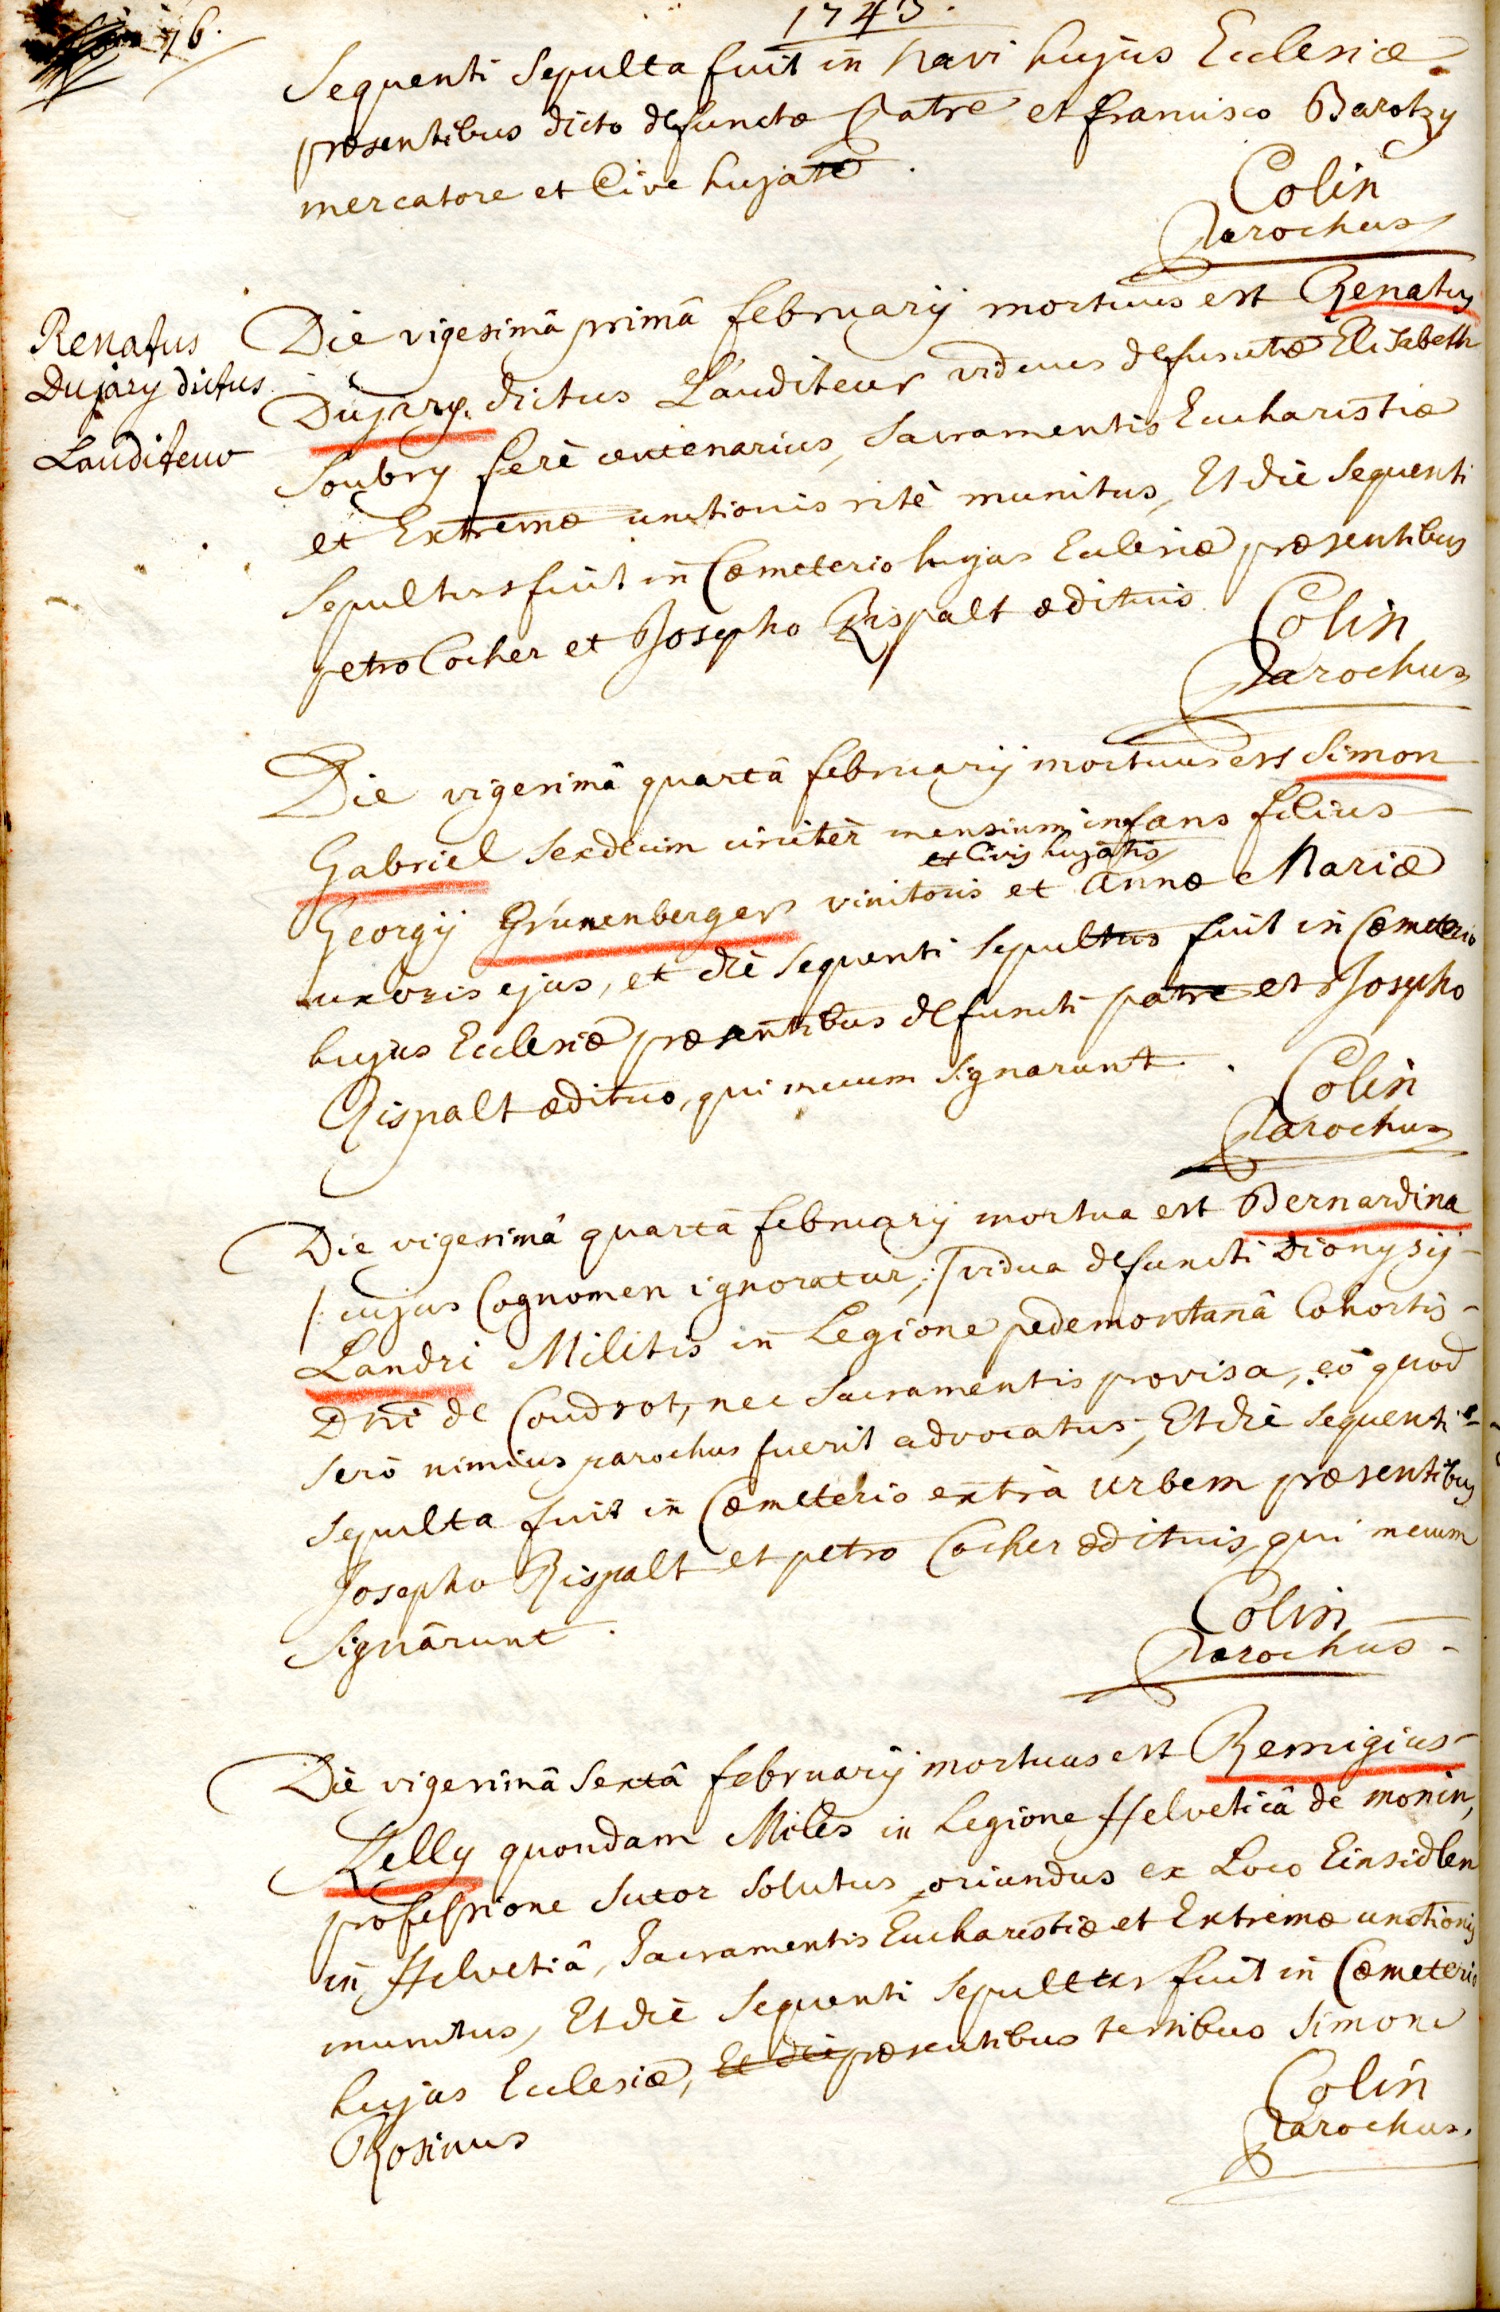 1743.
76.
Sequenti sepulta fuit in navi hujus Ecclesiæ
præsentibus dicto defunctæ Patre et francisco Barotzy
mercatore et Cive hujate.
Colin
Parochus
Renatus
Dujary dictus
Lauditeur
Die vigesimâ primâ february mortuus est Renatus
Dujary. dictus Lauditeur viduus defunctæ Elisabeth
Soubry ferè centenarius, Sacramentis Eucharistiæ
et Extremæ unctionis ritè munitus, Et die sequenti
sepultus fuit in Cæmeterio hujas Ecclesiæ præsentibus
petro Cocher et Josepho Rispalt ædituis
Colin
Parochus
Die vigesimâ quartâ february mortuus est Simon
Gabriel sexdecim circiter mensium infans filius
et Civis hujatis
Georgy Grunenberger vinitoris et annæ Mariæ
uxoris ejus, et die sequenti sepultus fuit in Cæmeterio
hujus Ecclesiæ præsentibus defuncti patre et Josepho
Rispalt ædituo, qui mecum signarunt.
Colin
Parochus
Die vigesimâ quartâ february mortua est Bernardina
/: cujus Cognomen ignoratur, :/ vidua defuncti Dionysij
Landri Militis in Legione pedemontanâ Cohortis
Dni de Coudrot, nec Sacramentis provisa, eò quod
serò nimius parochus fuerit advocatus, Et die sequenti
sepulta fuit in Cæmeterio extrà urbem præsentibus
Josepho Rispalt et petro Cocher ædituis, qui mecum
signârunt.
Colin
Parochus
Die vigesimâ sextâ february mortuus est Remigius
Kelly quondam Miles in Legione Helveticâ de monin,
professione sutor solutus, oriundus ex Loco Einsidlen
in Helvetiâ, Sacramentis Eucharistiæ et Extremæ unctionis
munitus, Et die sequenti sepultus fuit in Cæmeterio
hujus Ecclesiæ, Et die præsentibus testibus Simone
Rosinus
Colin
Parochus.